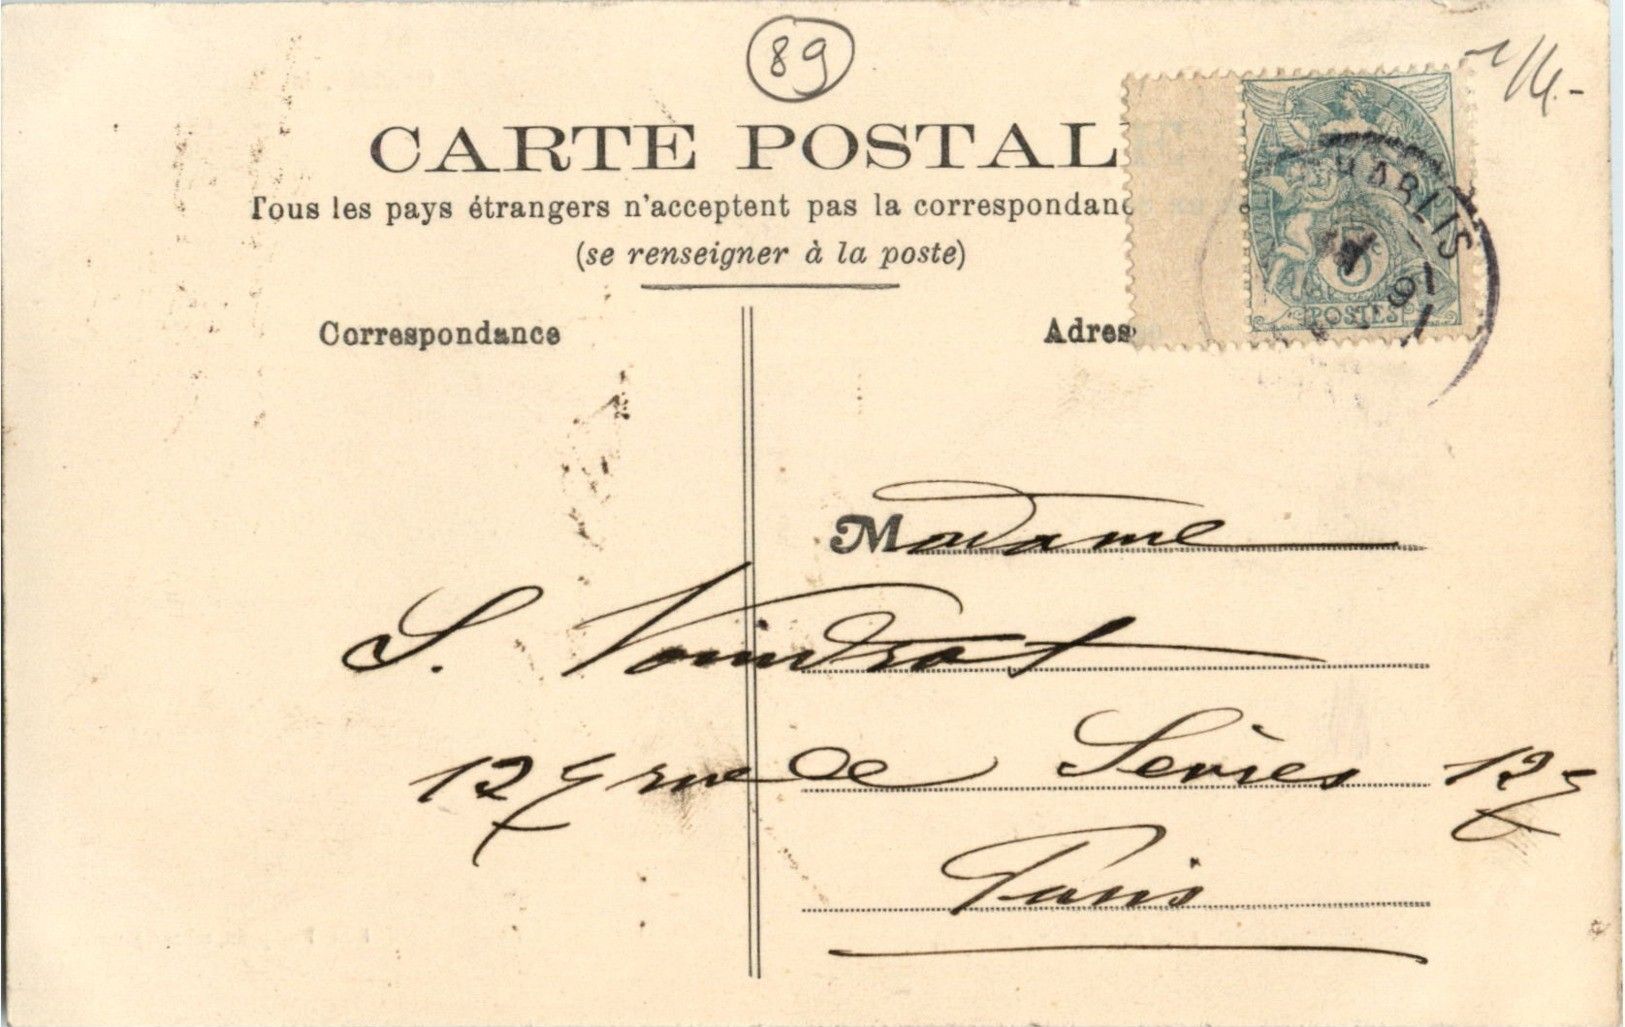 89
CARTE POSTALE
Tous les pays étrangers n'acceptent pas la correspondance au
(se renseigner à la poste)
Correspondance
Adres
CHABLIS
9
5c
POSTES
Madame
S. Voindrot
127 rue de Sèvres 127
Paris